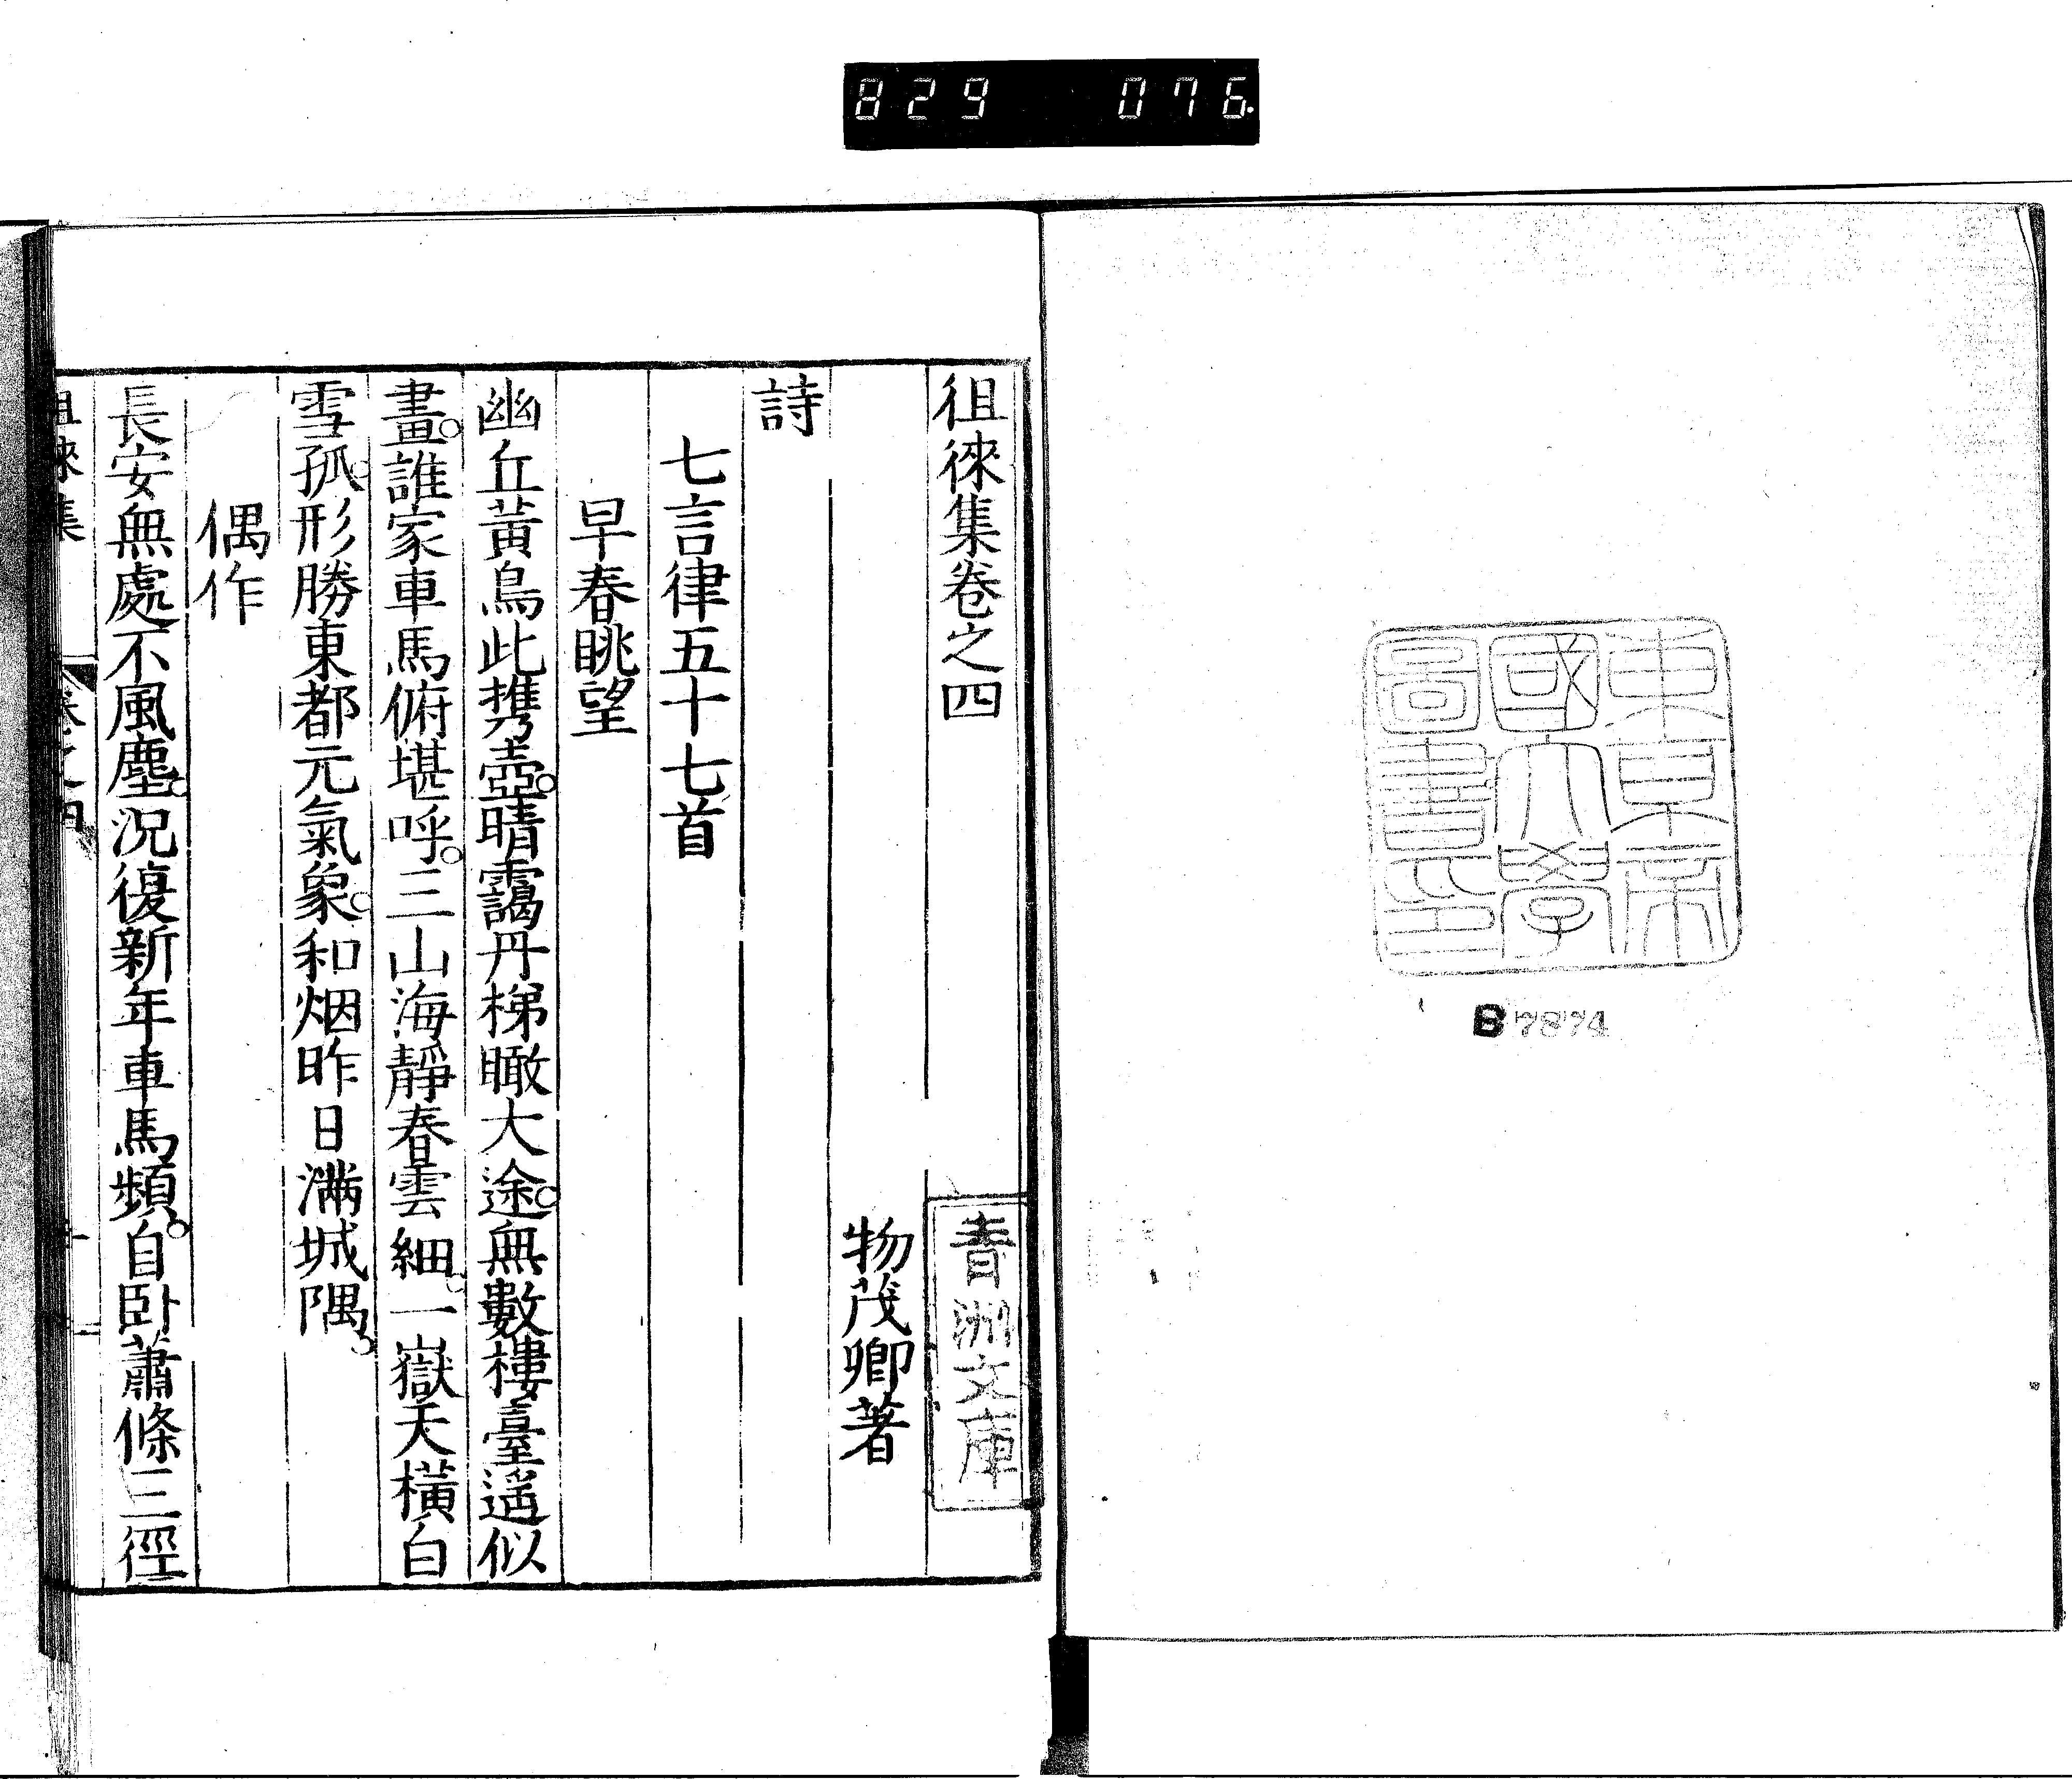 829 076.
東京帝
國大學
圖書印
B7874
徂徠集卷之四
青洲文庫
物茂卿著
詩
七言律五十七首
早春眺望
幽丘黃鳥此携壺。晴靄丹梯瞰大途。無數樓臺遥似
畫。誰家車馬俯堪呼。三山海靜春雲細。一嶽天橫白
雪孤。形勝東都元氣象。和烟昨日滿城隅。
偶作
長安無處不風塵。況復新年車馬頻。自臥蕭條三徑
徂徠集 卷之四